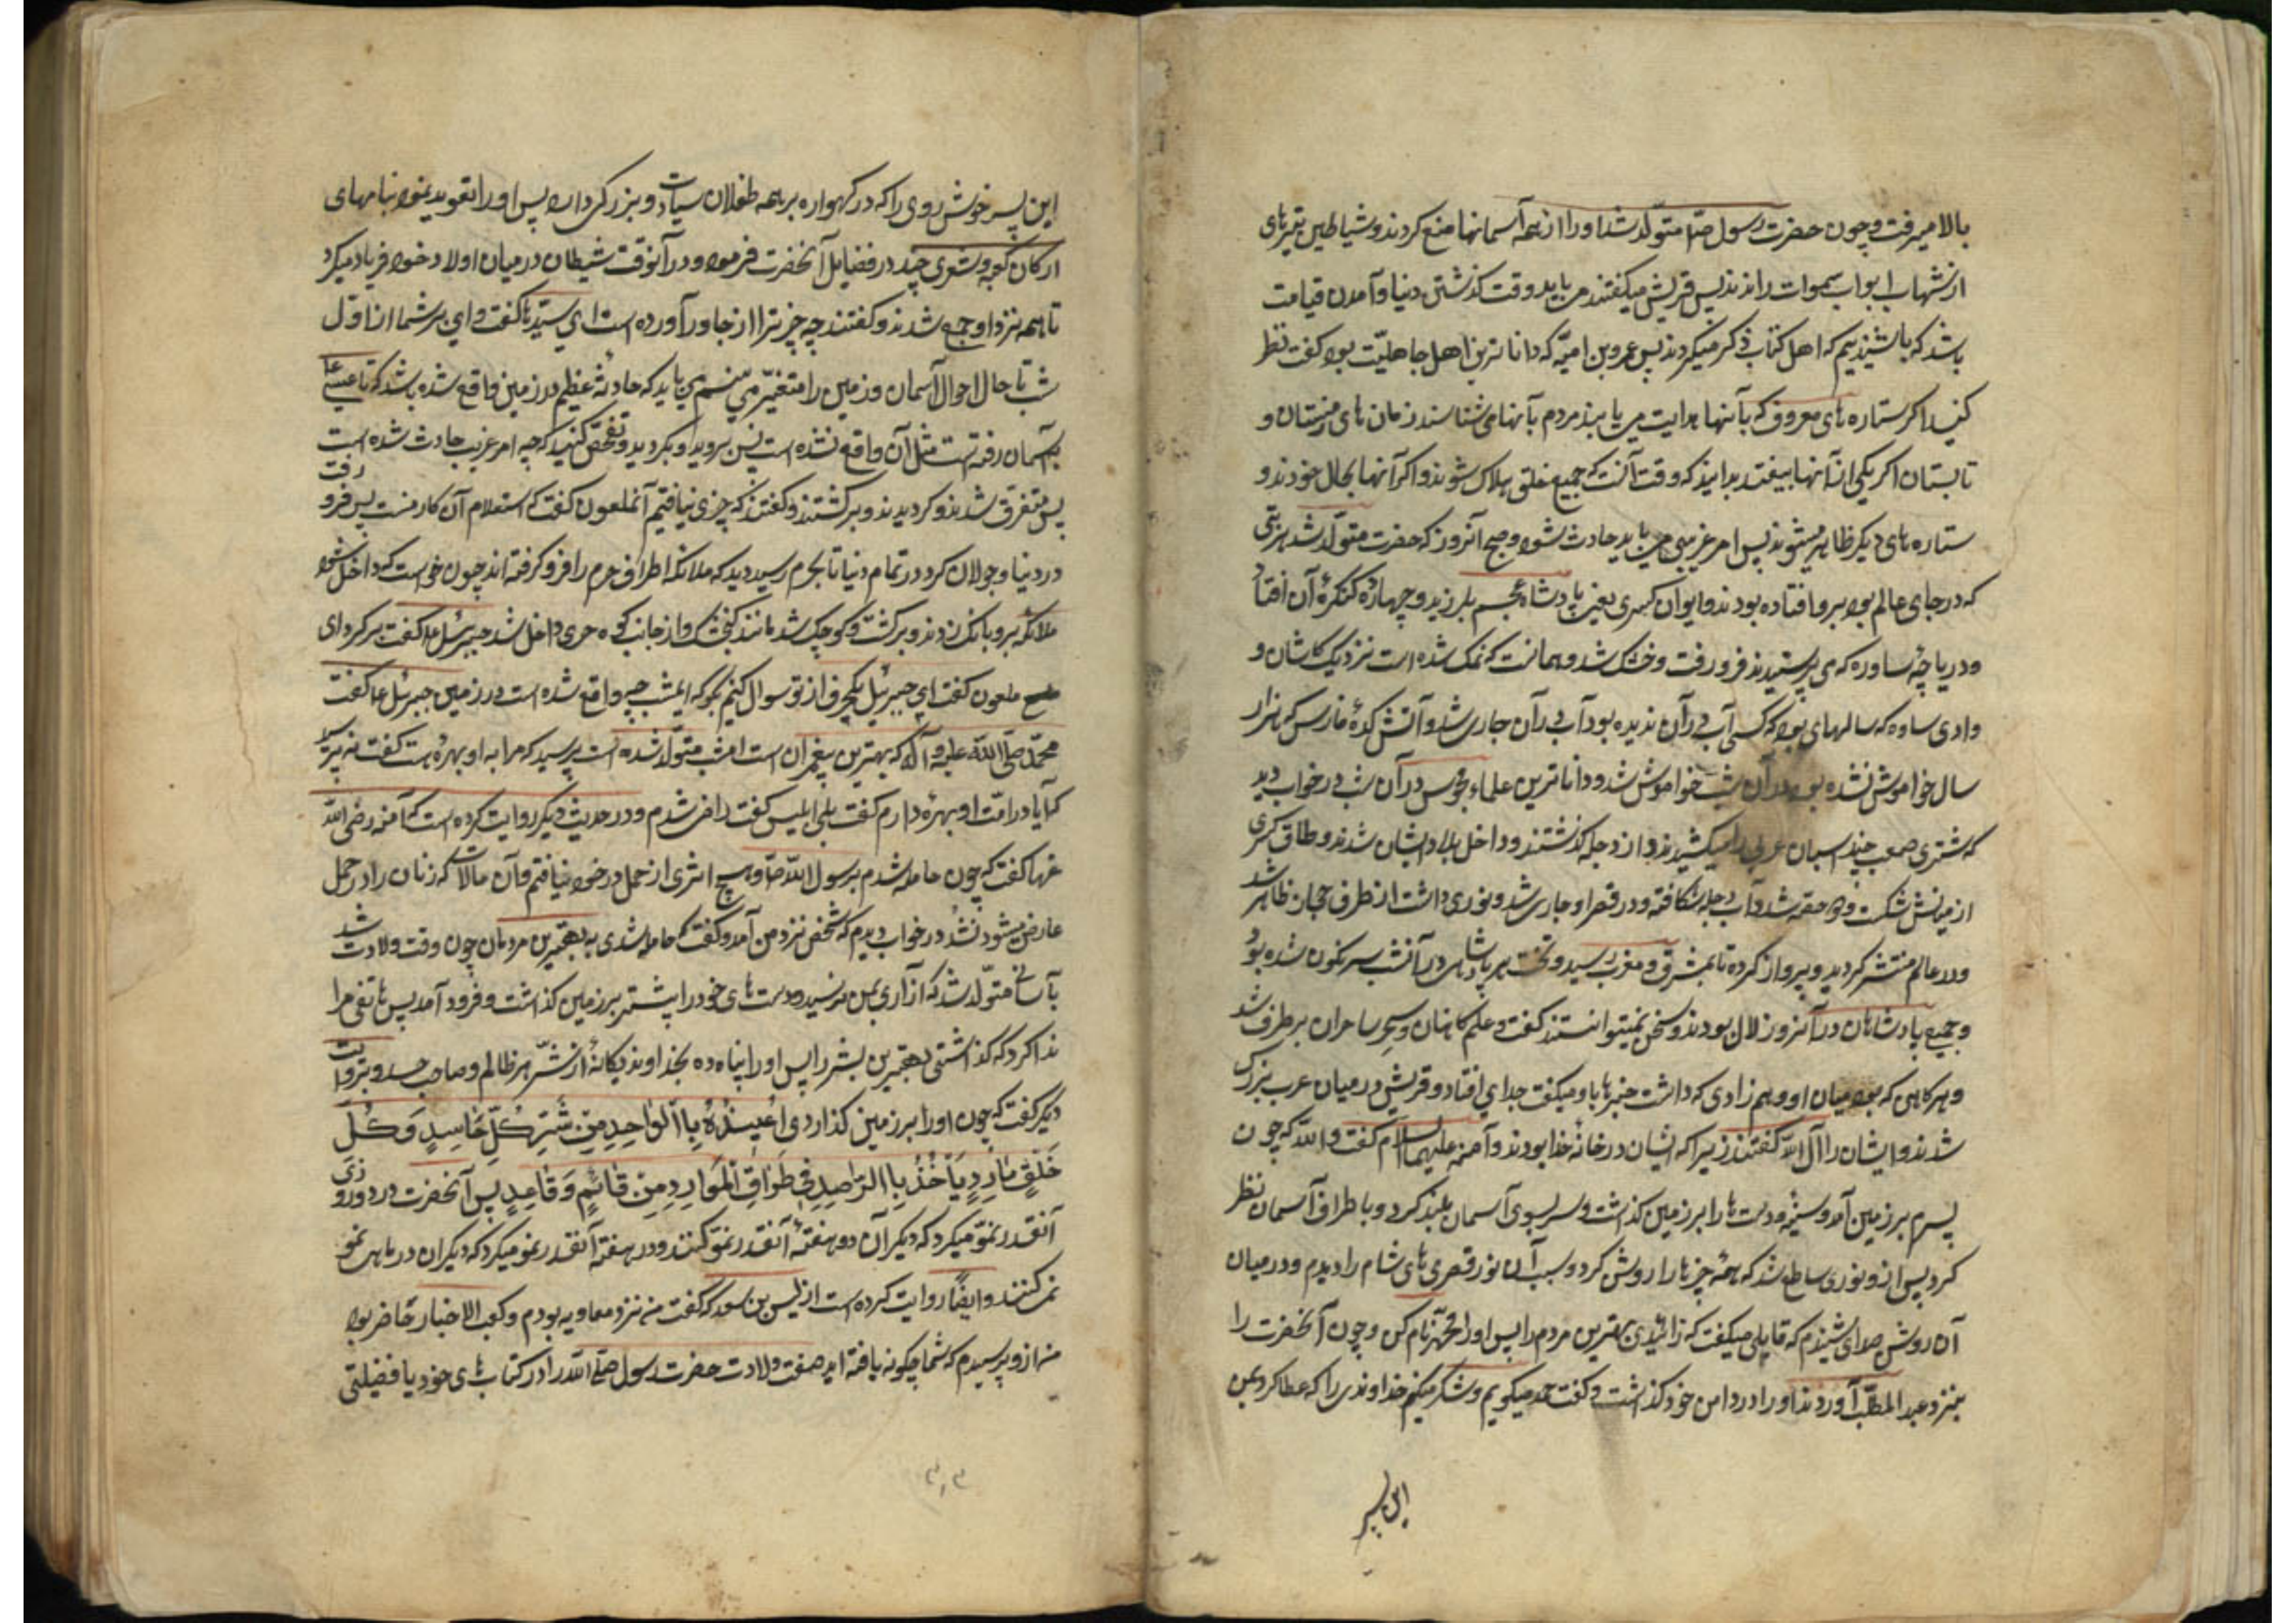 بالا میرفت و چون حضرت رسول ص متولّد شد او را از همه آسمانها منع کردند و شیاطین بتیرهای
از شهاب ابواب سموات راندند پس قریش میکفتند می باید وقت کذشتن دنیا و آمدن قیامت
باشد که ما شنیدیم که اهل کتاب ذکر میکردند پس عمرو بن امیّه که داناترین اهل جاهلیّت بود کفت نظر
کنید اکر ستاره های معروف که بآنها هدایت می یابند مردم بآنها می شناسند زمان های زمستان و
تابستان اکر یکی از آنها بیفتد بدانید که وقت آنست که جمیع خلق هلاک شوند و اکر آنها بحال خودند و
ستاره های دیکر ظاهر میشوند پس امر غریبی می باید حادث شود و صبح آنروز که حضرت متولّد شد هر بتی
که در جای عالم بود برو افتاده بودند و ایوان کسری یعنی پادشاه عجم بلرزید و چهارده کنکرهٔ آن افتاد
و دریاچهٔ ساوه که می پرستیدند فرو رفت و خشک شد و همانست که نمک شده است نزدیک کاشان و
وادی ساوه که سالهای بود که کسی آب در آن ندیده بود آب در آن جاری شد و آتش کدهٔ فارس که هزار
سال خاموش نشده بود در آن شب خواموش شد و داناترین علماء مجوس در آن شب در خواب دید
که شتری صعب چند اسبان عربی را میکشیدند و از دجله کذشتند و داخل بلاد ایشان شدند و طاق کسری
از میانش شکست و دو حصّه شد و آب دجله شکافته و در قصر او جاری شد و نوری داشت از طرف حجاز ظاهر شد
و در عالم منتشر کردید و پرواز کرده تا بمشرق و مغرب رسید و تخت هر پادشاهی در آنشب سرنکون شده بود
و جمیع پادشاهان در آنروز لال بودند و سخن نمیتوانستند کفت و علم کاهنان و سحر ساحران برطرف شد
و هر کاهنی که بود میان او و همزادی که داشت خبرها باو میکفت جدای افتاد و قریش در میان عرب بزرک
شدند و ایشان را آل الله کفتند زیرا که ایشان در خانهٔ خدا بودند و آمنه علیها السلام کفت و الله که چون
پسرم بر زمین آمد و دست ها را بر زمین کذاشت و سر بسوی آسمان بلند کرد و باطراف آسمان نظر
کرد پس از و نوری ساطع شد که همهٔ چیزها را روشن کرد و بسبب آن نور قصرهای شام را دیدم و در میان
آن روشنی صدای شنیدم که قایلی میکفت که زائیدی بهترین مردم را پس او را محمّد نام کن و چون آنحضرت را
بنزد عبد المطلّب آوردند او را در دامن خود کذاشت و کفت حمد میکویم و شکر میکنم خداوندی را که عطا کرد بمن
این پسر
این پسر خوش روی را که در کهواره بر همه طفلان سیادت و بزرکی دارد پس او را تعوید نمود بنامهای
ارکان کعبه و شعری چند در فضایل آنحضرت فرمود و در آنوقت شیطان در میان اولاد خود فریاد میکرد
تا همه نزد او جمع شدند و کفتند چه چیز ترا از جا در آورده است ای سیّد ما کفت وای بر شما از اوّل
شب تا حال احوال آسمان و زمین را متغیّر می بینم می باید که حادثهٔ عظیم در زمین واقع شده باشد که تا عیسی ع
بآسمان رفته است مثل آن واقع نشده است پس بروید و بکردید و تفحّص کنید که چه امر غریب حادث شده است
پس متفرق شدند و کردیدند و برکشتند و کفتند که چیزی نیافتیم آنملعون کفت که استعلام آن کار منست پس فرو رفت
در دنیا و جولان کرد در تمام دنیا تا بحرم رسید دید که ملائکه اطراف حرم را فرو کرفته اند چون خواست که داخل شود
ملائکه برو بانک زدند و برکشت و کوچک شد مانند کنجشک و از جانب کوه حری داخل شد جبرئیل ع کفت برکرد ای
ملعون کفت ای جبرئیل یکحرف از تو سوال کنم بکو که امشب چه واقع شده است در زمین جبرئیل ع کفت
محمّد صلّی الله علیه و آله که بهترین پیغمبران است امشب متولّد شده است پرسید که مرا به او بهره هست کفت نه پرسید
که آیا در امّت او بهره دارم کفت بلی ابلیس کفت راضی شدم و در حدیث دیکر روایت کرده است که آمنه رضی الله
عنها کفت که چون حامله شدم برسول الله ص و هیچ اثری از حمل در خود نیافتم و آن حالات که زنان را در حمل
عارض میشود نشد و در خواب دیدم که شخص نزد من آمد و کفت که حامله شدی به بهترین مردمان چون وقت ولادت شد
بآسانی متولّد شد که آزاری بمن نرسید و دست های خود را پیشتر بر زمین کذاشت و فرود آمد پس هاتفی مرا
ندا کرد که کذاشتی بهترین بشر را پس او را پناه ده بخداوند یکانهٔ از شرّ هر ظالم و صاحب حسد و بروایت
دیکر کفت که چون او را بر زمین کذاردی اُعِیذُهُ بِالْواحِدِ مِنْ شَرِّ کُلِّ حٰاسِدٍ وَ کُلِّ
خَلْقٍ مٰارِدٍ یَأخُذُ بِالمَرٰاصِدِ فی طَرٰاقِ المَوٰارِدِ مِنْ قٰائِمٍ وَ قٰاعِدٍ پس آنحضرت در دو روزی
آنقدر نموّ میکرد که دیکران در هفتهٔ آنقدر نموّ کنند و در هفتهٔ آنقدر نمو میکرد که دیکران در ماهی نمو
نمی کنند و ایضاً روایت کرده است از لیس بن سعد که کفت من نزد معاویه بودم و کعب الاحبار حٰاضر بود
من ازو پرسیدم که شما چکونه یافته اید صفت ولادت حضرت رسول صلی الله را در کتاب های خود یا فضیلتی